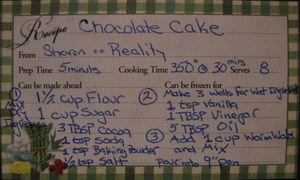 Recipe Chocolate Cake
From Sharon oo Reality
Prep Time 5 minuts Cooking Time 350° @ 30 mins Serves 8
Can be made ahead Can be frozen for
① 1 1/2 cup Flour ② Make 3 wells for Wet Ingredients
Mix Dry Ingredients
1 cup Sugar 1 tsp Vanilla
3 TBSP Cocoa 1 TBSP Vinegar
1 tsp Soda 5 TBSP Oil
1 tsp Baking Powder ③ Add 1 cup Warm Water
1/2 tsp Salt and Mix
Pour into 9" Pan